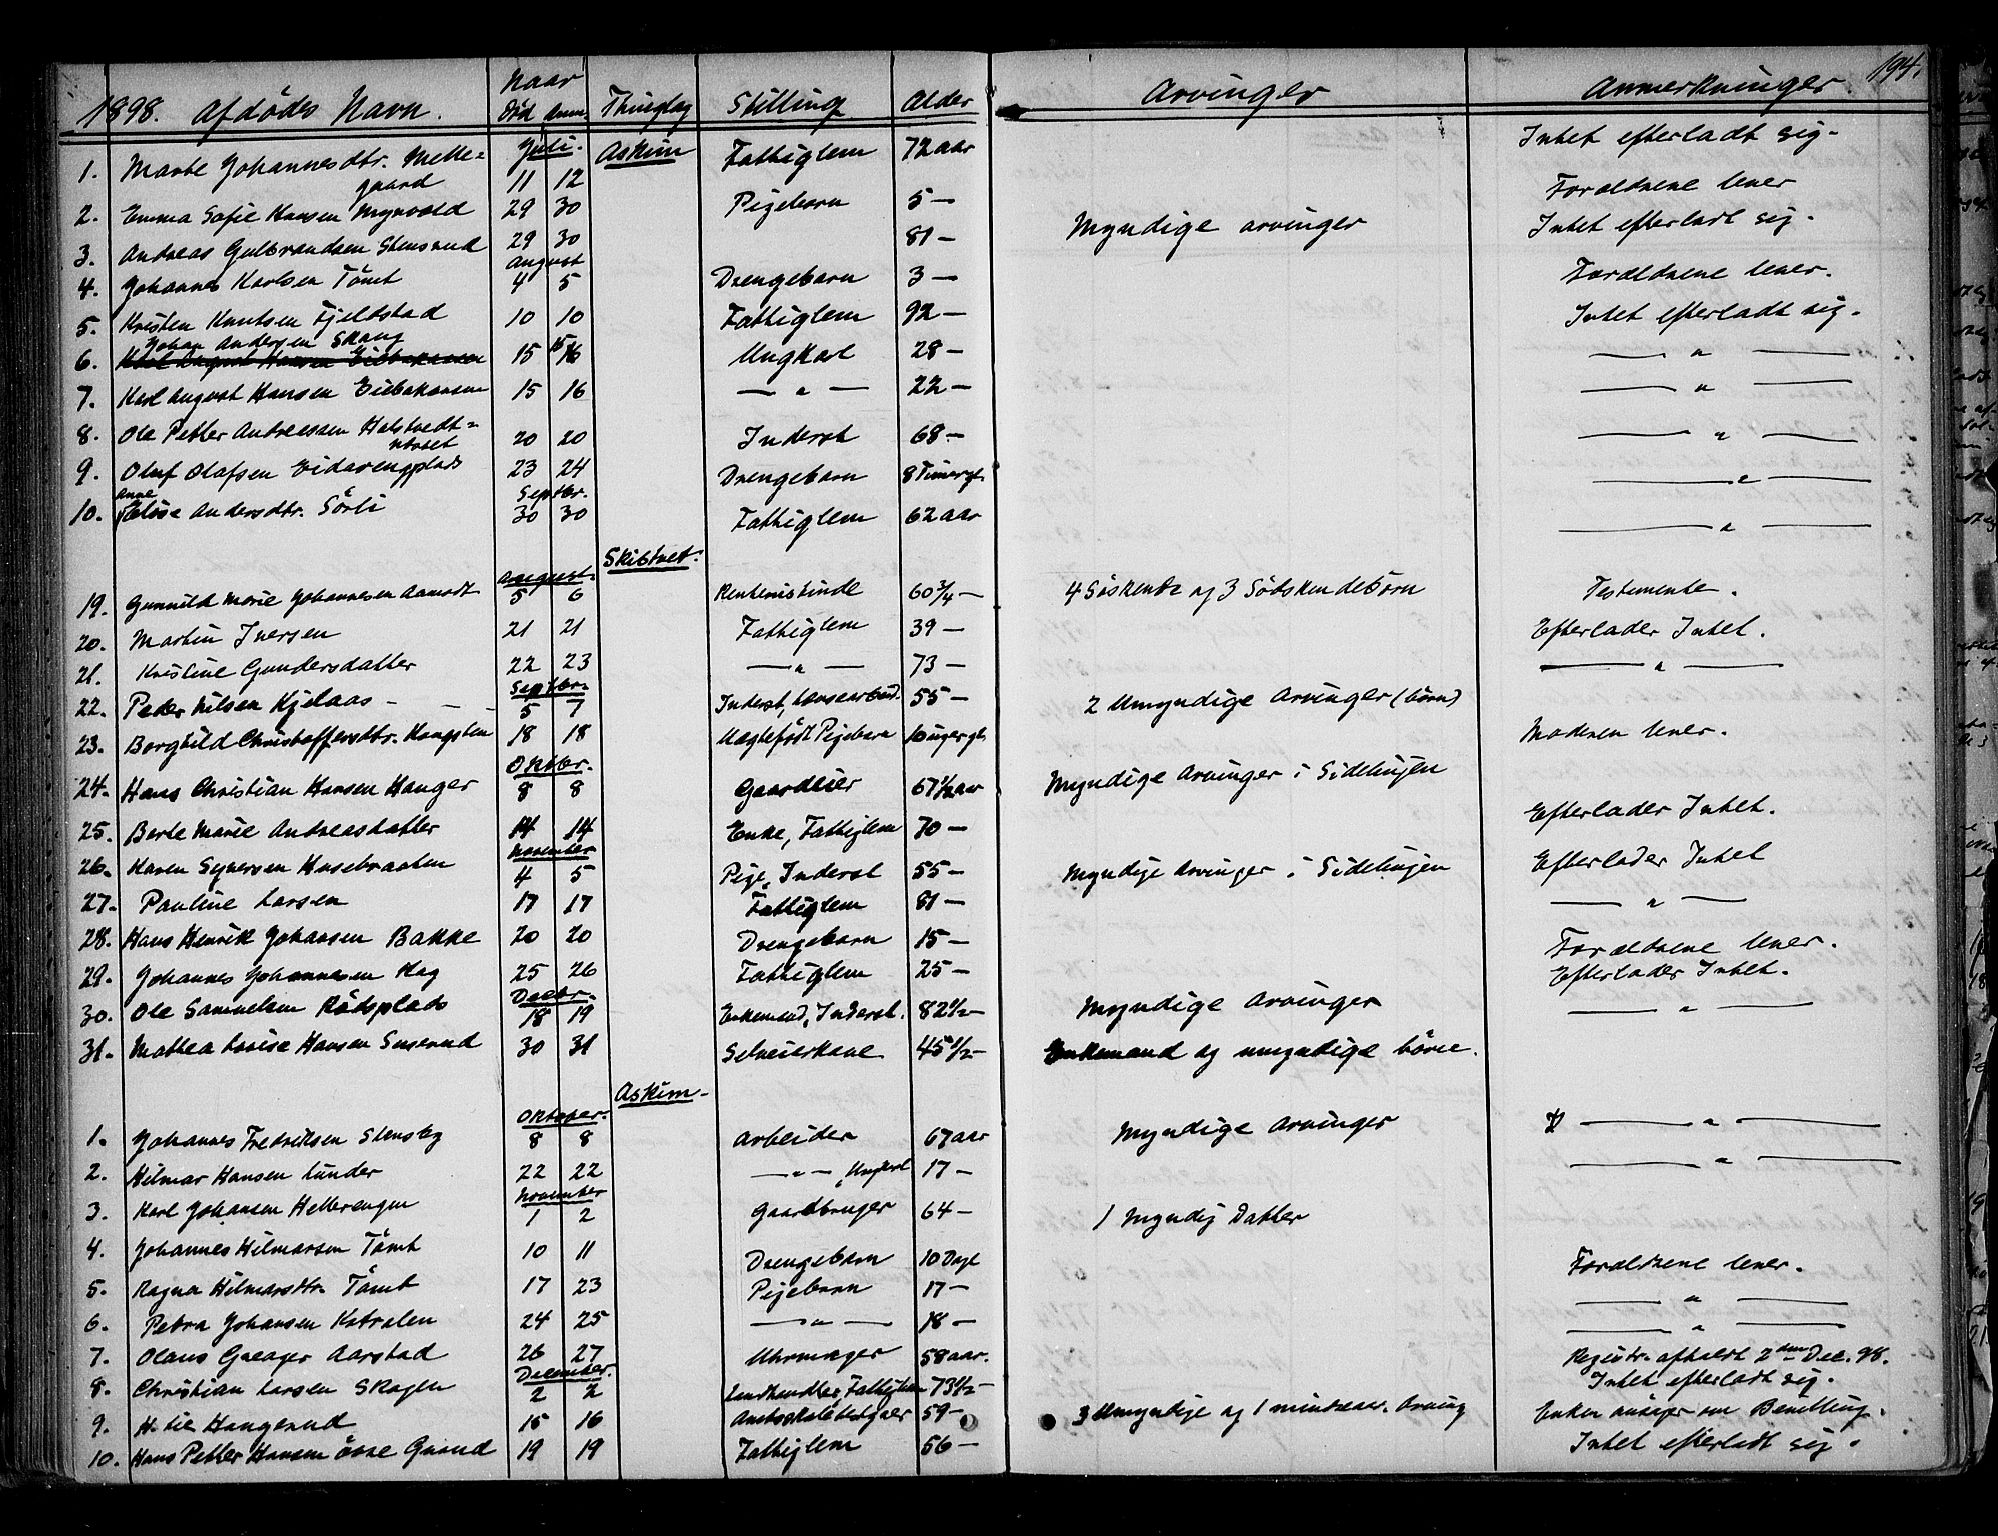 194.
1898. Afdöds Navn. Naar Död Anm. Thinglag Stilling Alder Arvinger Anmerkninger
Juli. Askim
1. Marte Johannesdtr. Melle= 72 aar Fattiglem Intet efterladt sig.
gaard 11 12
2. Emma Sofie Hansen Myrvold 29 30 Pigebarn 5 — Forældrene lever
3. Andreas Gulbrandsen Stensrud 29 30 81 — Myndige arvinger Intet efterladt sig.
August
4. Johannes Karlsen Tömt 4 5 Drengebarn 3 — Forældrene lever.
5. Kristen Knutsen Fjeldstad 10 10 Fattiglem 92 — Intet efterladt sig.
Johan Andersen Skaug
6. 15 16 Ungkarl 28 — — " —
7. Karl August Hansen 15 16 — " — 22 — — " —
8. Ole Petter Andreassen 20 20 Inderst 68 — — " —
9. Oluf Olafsen Eidarengplads 23 24 Drengebarn 8 Timer gl. — " —
Septbr.
Anne
10. Andersdtr. Sörli 30 30 Fattiglem 62 aar — " —
Skibtvet.
August.
19. Gunnild Marie Johannesen Aamodt 5 6 60 3/4 — 4 Söskende og 3 Södskendebörn Testamente.
20. Martin Iversen 21 21 Fattiglem 39 — Efterlader Intet.
21. Kristine Gundersdatter 22 23 — " — 73 — — " —
Septbr.
22. Peder Nilsen Kjelaas — 5 7 Inderst, 55 — 2 Umyndige Arvinger (börn)
23. Borghild Christoffersdtr. 18 18 Uægtefödt Pigebarn 10 uger gl. Moderen lever.
Oktbr.
24. Hans Christian Hansen Hauger 8 8 Gaardeier 67 1/2 aar Myndige Arvinger i Sidelinjen
25. Berte Marie Andreasdatter 14 14 Enke, Fattiglem 70 — Efterlader Intet.
November
26. Karen Syversen Husebraaten 4 5 Pige, Inderst 55 — Myndige Arvinger i Sidelinjen Efterlader Intet
27. Pauline Larsen 17 17 Fattiglem 81 — — " —
28. Hans Henrik Johansen Bakke 20 20 Drengebarn 15 — Forældrene lever.
29. Johannes Johannesen Hag 25 26 Fattiglem 25 — Efterlader Intet.
Decbr.
30. Ole Samuelsen Rödsplads 18 19 Enkemand, Inderst. 82 1/2 — Myndige Arvinger — " —
31. Mathea Lovise Hansen Suserud 30 31 Selveierkone 45 1/2 — Enkemand og umyndige börn.
Askim.
Oktober.
1. Johannes Fredriksen Stensby 8 8 Arbeider 67 aar Myndige Arvinger — " —
2. Hilmar Hansen Lunder 22 22 — " — Ungkarl 17 — — " —
November
3. Karl Johansen Hellerengen 1 2 Gaardbruger 64 — 1 Myndig Datter
4. Johannes Hilmarsen Tömt 10 11 Drengebarn 10 Dage Forældrene lever.
5. Ragna Hilmarsdtr. Tömt 17 23 Pigebarn 17 — — " —
6. Petra Johansen Katralen 24 25 — " — 18 — — " —
7. Olaus Gulager Aarstad 26 27 Uhrmager 58 aar. Registr. afholdt 2den Dec. 98.
December.
8. Christian Larsen Skogen 2 2 Landhandler, Fattiglem 73 1/2 — Intet efterladt sig.
9. Haugerud 15 16 Amtsskolebestyrer 59 — 3 Umyndige og 1 mindreaar. Arving Enken ansøger om Bevilling.
10. Hans Petter Hansen övre Grönd 19 19 Fattiglem 56 — Intet efterladt sig.